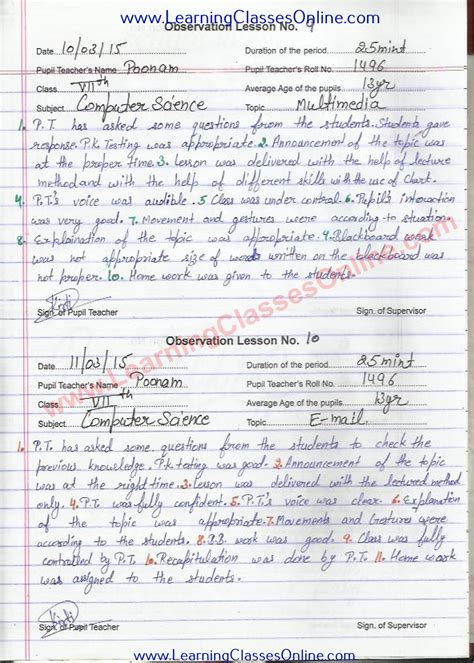 www.LearningClassesOnline.com
Observation Lesson No. 9
Date 10/03/15 Duration of the period 25mint
Pupil Teacher's Name Poonam Pupil Teacher's Roll No. 1496
Class VIIth Average Age of the pupils 13yr
Subject Computer Science Topic Multimedia
1. P.T. has asked some questions from the students. Students gave
response. P.k. Testing was appropriate. 2. Announcement of the topic was
at the proper time. 3. Lesson was delivered with the help of lecture
method and with the help of different skills with the use of Chart.
4. P.T.'s voice was audible. 5. Class was under control. 6. Pupil's interaction
was very good. 7. Movement and gestures were according to situation.
8. Explaination of the topic was appropriate. 9. Blackboard work
was not appropriate size of words written on the blackboard was
not proper. 10. Home work was given to the students.
Sign. of Pupil Teacher Sign. of Supervisor
www.LearningClassesOnline.com
Observation Lesson No. 10
Date 11/03/15 Duration of the period 25mint
Pupil Teacher's Name Poonam Pupil Teacher's Roll No. 1496
Class VIIth Average Age of the pupils 13yr
Subject Computer Science Topic E-mail
1. P.T. has asked some questions from the students to check the
previous knowledge. P.k testing was good. 2. Announcement of the topic
was at the right time. 3. Lesson was delivered with the lectured method
only. 4. P.T. was fully confident. 5. P.T.'s voice was clear. 6. Explanation
of the topic was appropriate. 7. Movements and Gestures were
according to the students. 8. B.B. work was good. 9. Class was fully
controlled by P.T. 10. Recapitulation was done by P.T. 11. Home work
was assigned to the students.
Sign. of Pupil Teacher Sign. of Supervisor
www.LearningClassesOnline.com